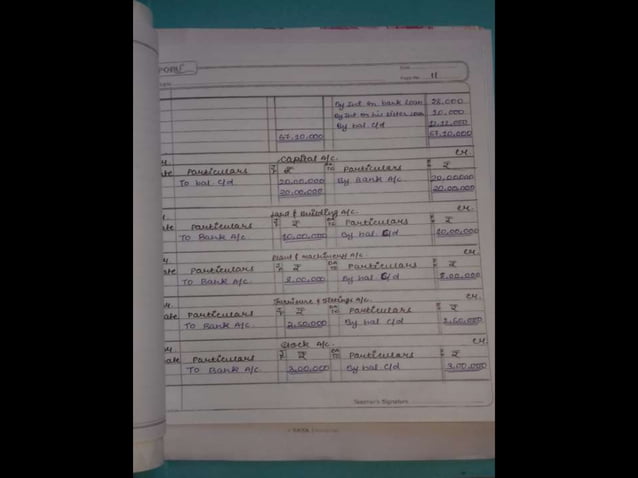 Page No. 11
By Int. on bank loan 28.000
By Int. on his sister loan
By bal. c/d
67.20.000
Capital A/c. Cr.
Particulars ₹ Particulars ₹
To bal. c/d 20.00.000 By Bank A/c 20.00.000
20.00.000 20.00.000
Land & Building A/c. Cr.
Particulars ₹ Particulars ₹
To Bank A/c. 10.00.000 By bal. c/d 10.00.000
Plant & machinery A/c Cr.
Particulars ₹ Particulars ₹
To Bank A/c. 8.00.000 By bal c/d 8.00.000
Furniture & A/c. Cr.
Particulars ₹ Particulars ₹
To Bank A/c. 2.50.000 By bal c/d 2.50.000
Stock A/c. Cr.
Particulars ₹ Particulars ₹
To Bank A/c. 3.00.000 By bal. c/d 3.00.000
Teacher's Signature